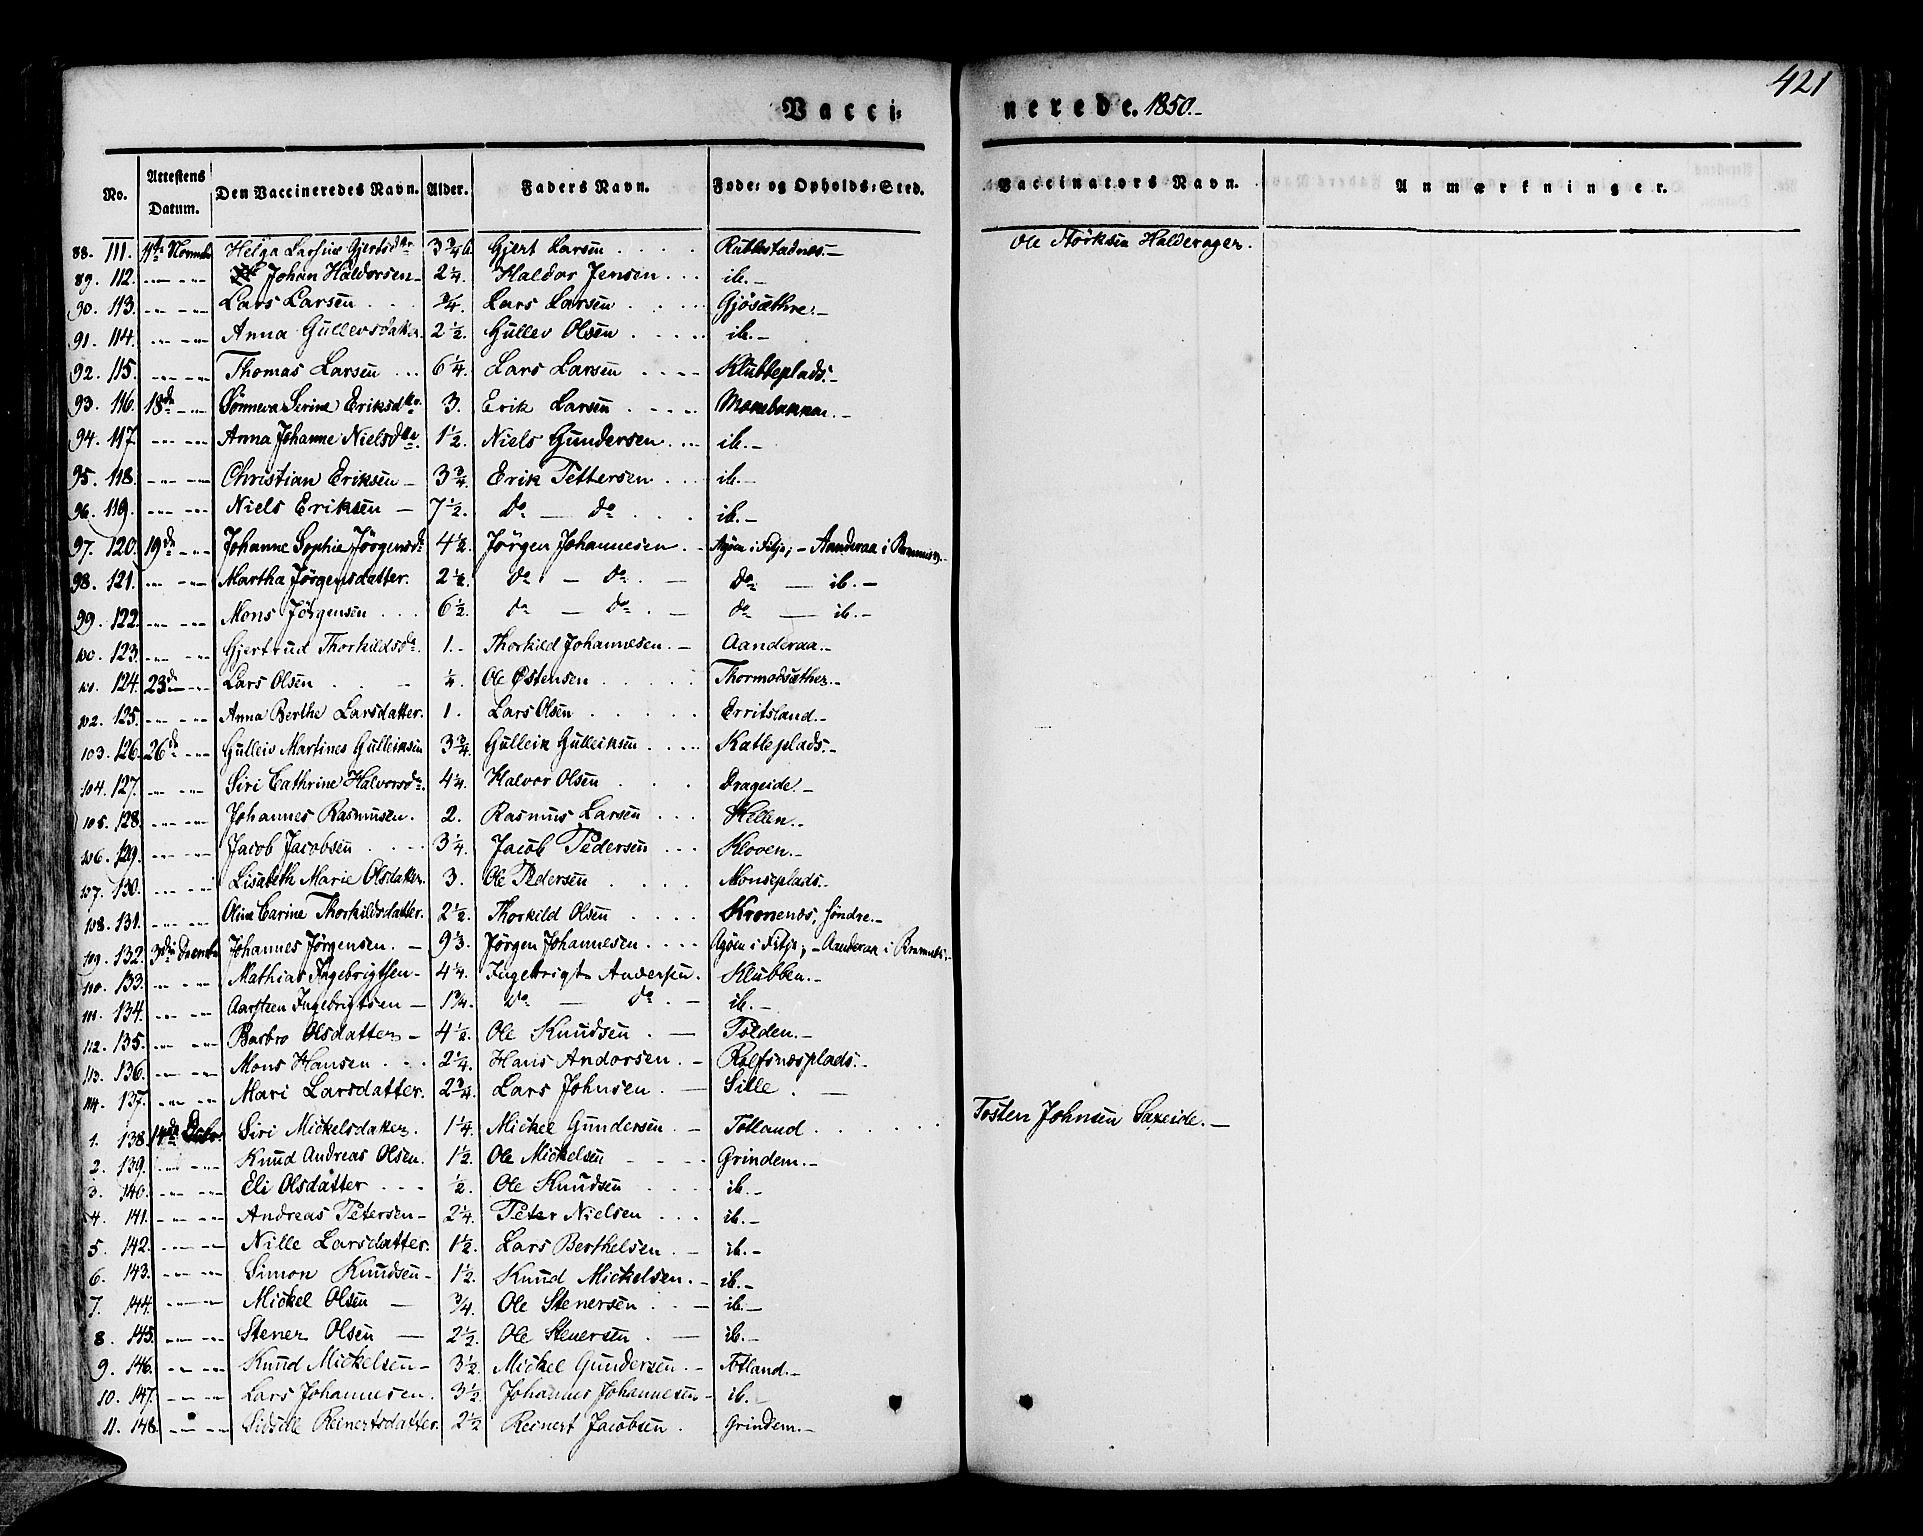 421
Vacci=nerede. 1850.-
No. Attestens Datum. Den Vaccineredes Navn. Alder. Faders Navn. Føde= og Opholds=Sted. Vaccinators Navn. Anmærkninger.
88. 111. 11te Novemb. Helga Larsine Gjertsdtr 3 3/4 Gjert Larsen Rubbestadnes.- Ole Størksen Halderager.
89. 112. Johan Haldorsen- 2 1/4. Haldor Jensen ib.-
90. 113. Lars Larsen 3/4. Lars Larsen Gjøsæthre.-
91. 114. Anna Gullevsdatter 2 1/2. Gullev Olsen ib.-
92. 115. Thomas Larsen 6 1/4. Lars Larsen Klubbeplads.-
93. 116. 18de Sønneva Serine Eriksdtr. 3. Erik Larsen
94. 117. Anna Johanne Nielsdtr. 1 1/2. Niels Gundersen ib.-
95. 118. Christian Eriksen- 3 3/4. Erik Pettersen ib.-
96. 119. Niels Eriksen - 7 1/2. do - do ib.-
97. 120. 19de Johanne Sophie Jørgensdr 4 1/2. Jørgen Johannesen.- Agøen i Fitje; - Aanderaa i Bremnes.
98. 121. Martha Jørgensdatter. 2 1/2. do - do - do - ib.-
99. 122. Mons Jørgensen 6 1/2. do - do - do - ib.-
100. 123. Gjertrud Thorkildsdr. 1.- Thorkild Johannesen.- Aanderaa.-
101. 124. 23de Lars Olsen 1/4. Ole Østensen Thormodsæther.-
102. 125. Anna Berthe Larsdatter. 1. Lars Olsen Erritsland.-
103. 126. 26de Gulleiv Martines Gulleiksen 3 3/4. Gulleik Gulleiksen Katleplads.-
104. 127. Siri Cathrine Halvorsdr. 4 1/4. Halvor Olsen Drageide.-
105. 128. Johannes Rasmusen. 2. Rasmus Larsen Hellen.-
106. 129. Jacob Jacobsen 3 1/4. Jacob Pedersen Kloven.-
107. 130. Lisabeth Marie Olsdatter. 3. Ole Pedersen Monseplads.-
108. 131. Oline Carine Thorkildsdatter. 2 1/2. Thorkild Olsen Kronenes, søndre.-
109. 132. 3die Decemb. Johannes Jørgensen.- 9 1/3. Jørgen Johannesen Agøen i Fitje; - Aanderaa i Bremnes.-
110. 133. Mathias Ingebrigtsen- 4 1/4. Ingebrigt Andersen. Klubben.-
111. 134. Aarsteen Ingebrigtsen- 1 3/4. do - do.- ib.-
112. 135. Barbro Olsdatter- 4 1/2. Ole Knudsen.- Tolden.-
113. 136. Mons Hansen 2 1/4. Hans Andorsen.- Rolfsnesplads.-
114. 137. Mari Larsdatter. 2 3/4. Lars Johnsen.- Sille.-
1. 138. 14de Siri Mickelsdatter. 1 1/4. Mickel Gundersen.- Totland Tosten Johnsen Saxeide.-
2. 139. Knud Andreas Olsen. 1 1/2. Ole Mickelsen Grindem.-
3. 140. Eli Olsdatter 1/2. Ole Knudsen ib.-
4. 141. Andreas Petersen- 2 1/4. Peter Nielsen ib.-
5. 142. Nille Larsdatter. 1 1/2. Lars Berthelsen.- ib.-
6. 143. Simon Knudsen- 1 1/2. Knud Mickelsen.- ib.-
7. 144. Mickel Olsen - 3/4. Ole Stenersen.- ib.-
8. 145. Stener Olsen - 2 1/2. Ole Stenersen.- ib.-
9. 146. Knud Mickelsen- 3 1/2. Mickel Gundersen.- Totland.-
10. 147. Lars Johannesen. 3 1/2. Johannes Johannesen- ib.
11. 148. Sidselle Reinertsdatter. 2 1/2 Reinert Jacobsen. Grindem.-